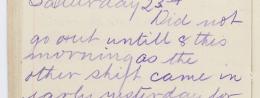 Saturday 23rd
Did not
go out untill 8 this
morning as the
other shift came in
early yesterday for